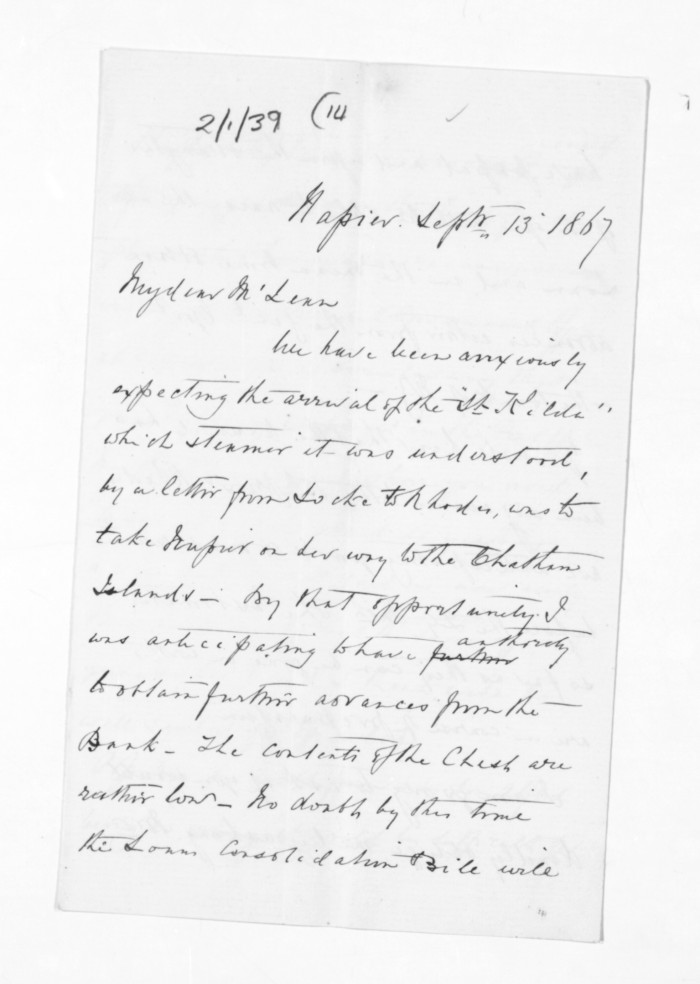 2/1/39 (14
Napier. Septr 13 1867
My dear McLean
We have been anxiously
expecting the arrival of the "St Kilda"
which steamer it was understood,
by a letter from Locke to Rhodes, was to
take Napier on her way to the Chatham
Islands - By that opportunity I
was anticipating to have further authority
to obtain further advances from the
Bank - The contents of the Chest are
rather low - No doubt by this time
the Loans Consolidation Bill will